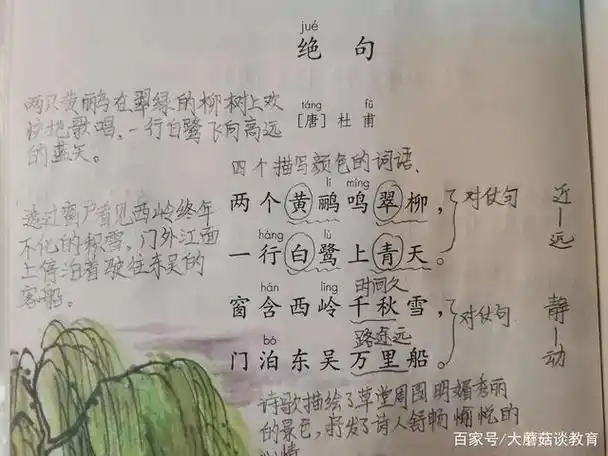 jué
绝句
táng fǔ
[唐] 杜甫
两只黄鹂在翠绿的柳树上欢
快地歌唱,一行白鹭飞向高远
的蓝天。
透过窗户看见西岭终年
不化的积雪,门外江面
上停泊着驶往东吴的
客船。
四个描写颜色的词语、
lí míng
两个黄鹂鸣翠柳,
对仗句
近—远
háng lù
一行白鹭上青天。
时间久
hán lǐng
窗含西岭千秋雪,
对仗句
静—动
路途远
bó
门泊东吴万里船。
诗歌描绘了草堂周围明媚秀丽
的景色,抒发了诗人舒畅愉悦的
心情
百家号/大蘑菇谈教育